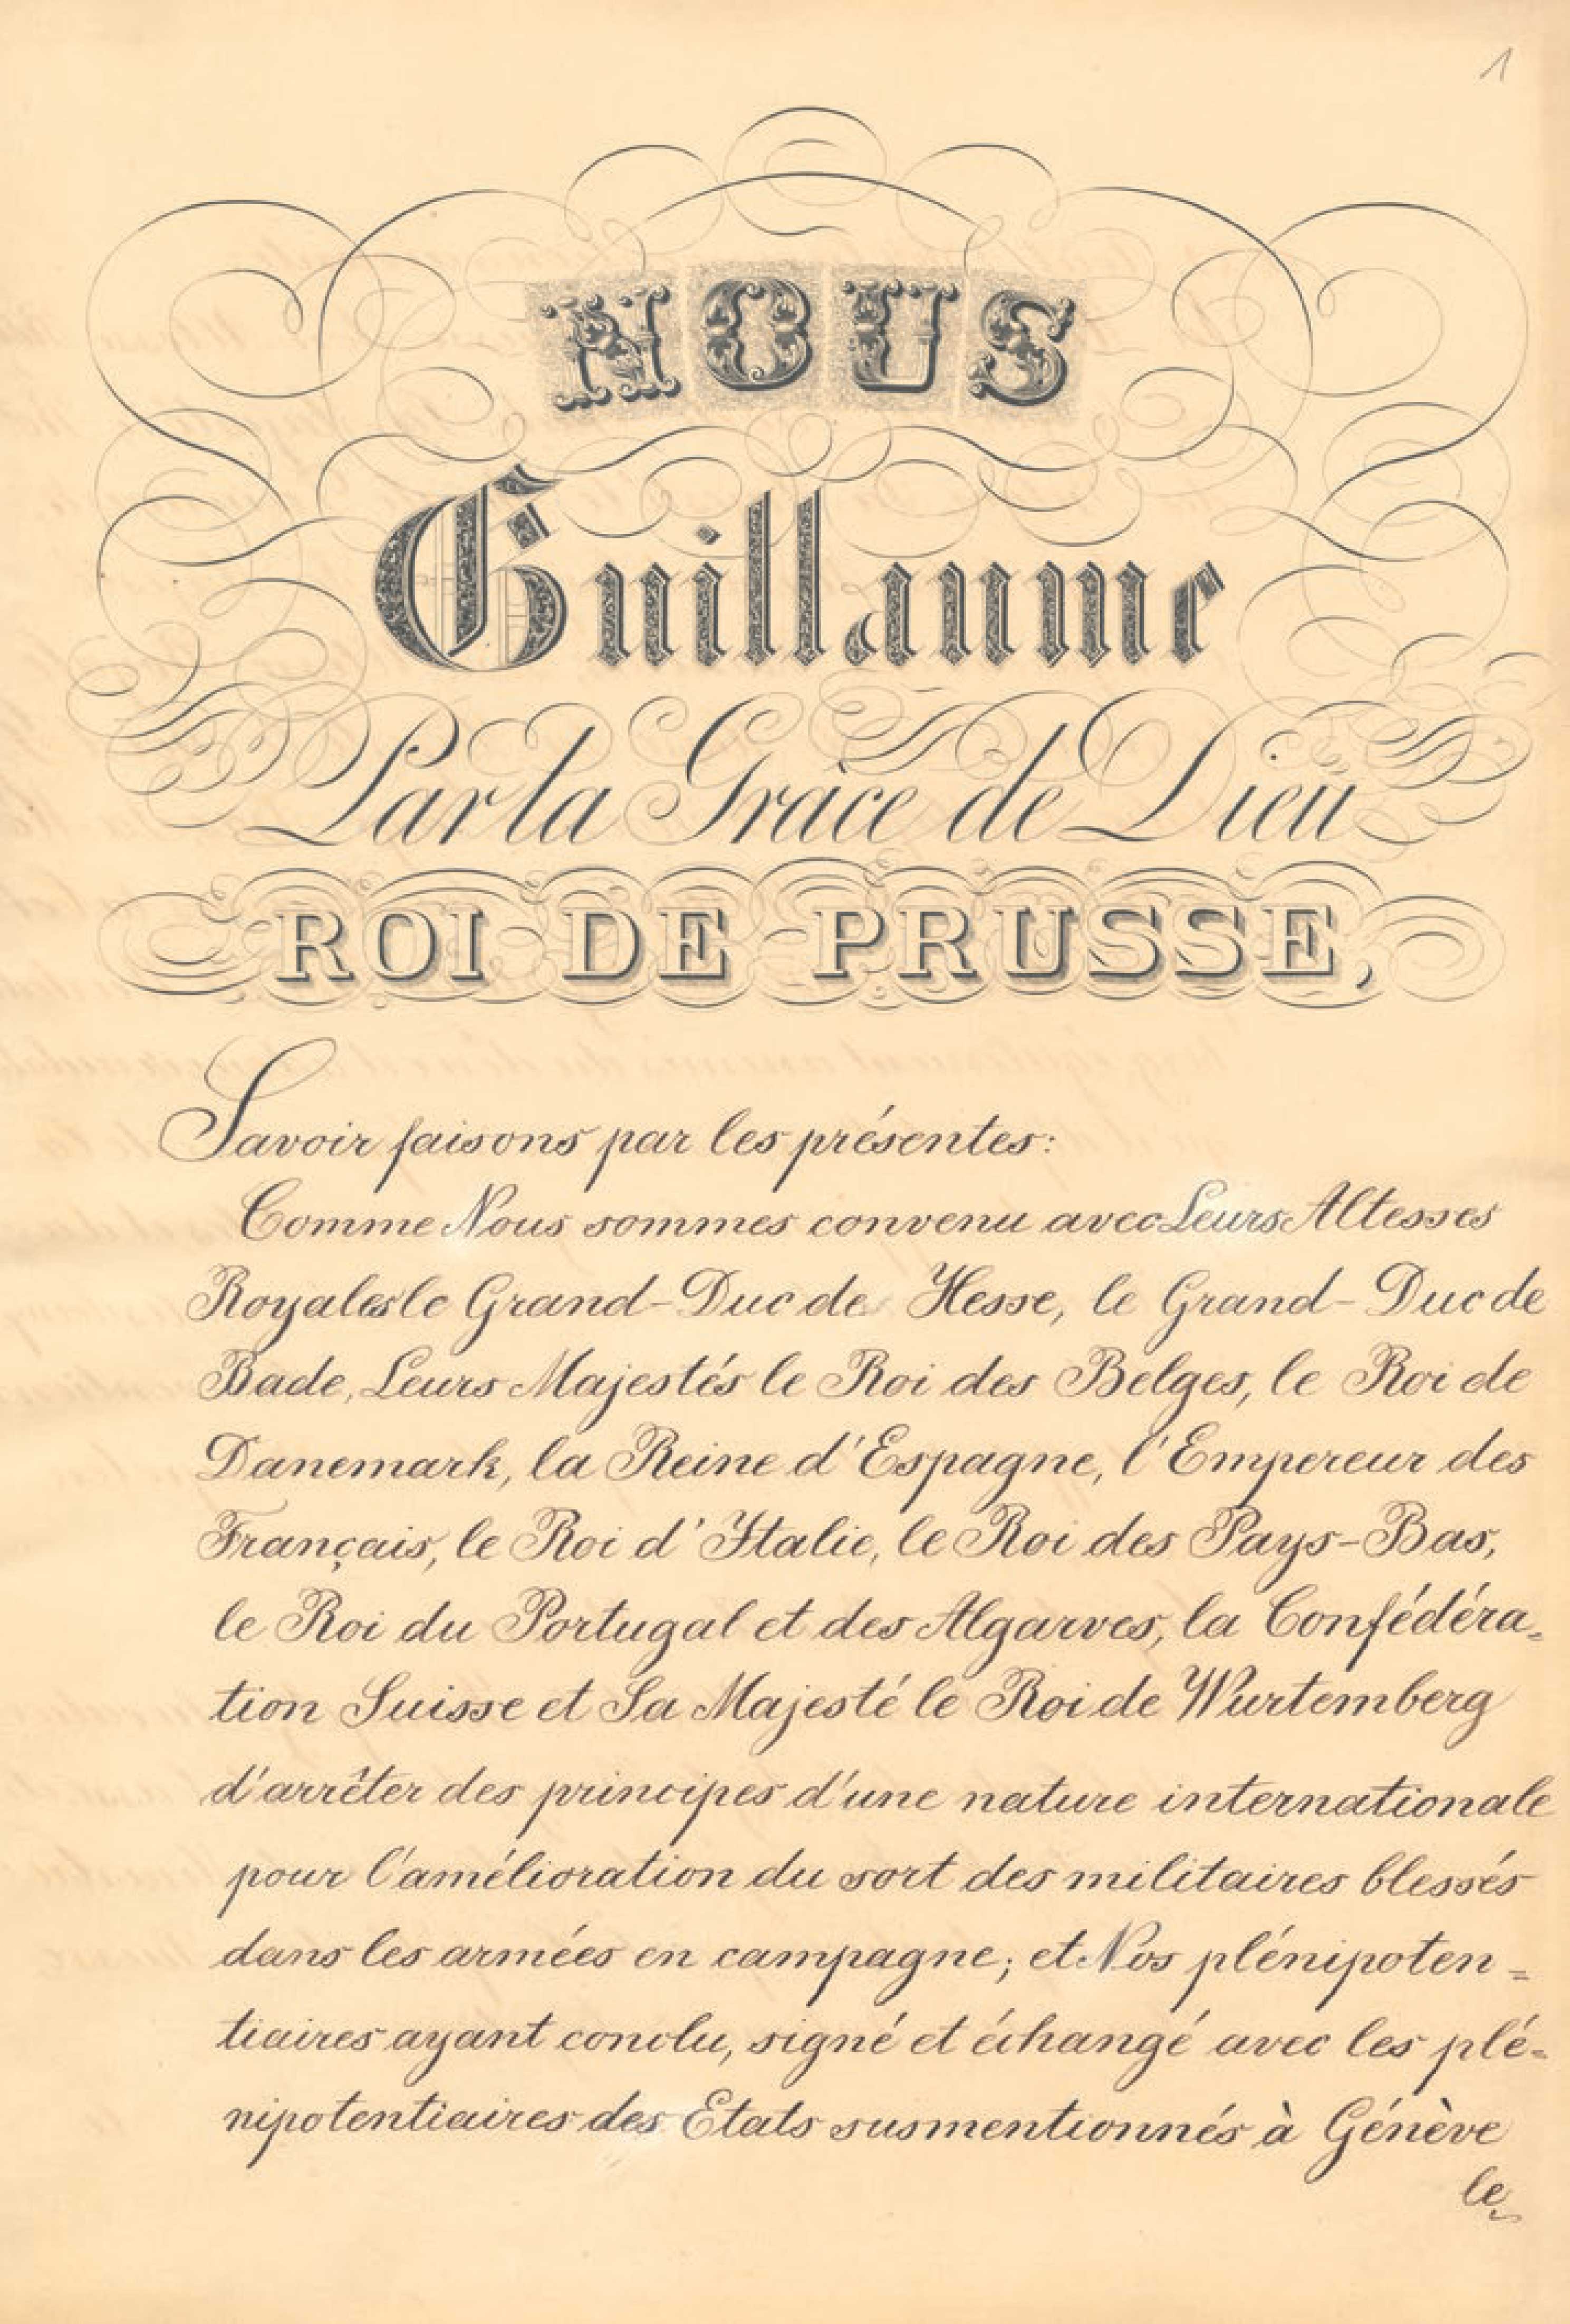 1
NOUS
Guillaume
Par la Grâce de Dieu
ROI DE PRUSSE,
Savoir faisons par les présentes:
Comme Nous sommes convenu avec Leurs Altesses
Royales le Grand-Duc de Hesse, le Grand-Duc de
Bade, Leurs Majestés le Roi des Belges, le Roi de
Danemark, la Reine d'Espagne, l'Empereur des
Français, le Roi d'Italie, le Roi des Pays-Bas,
le Roi du Portugal et des Algarves, la Confédéra=
tion Suisse et Sa Majesté le Roi de Wurtemberg
d'arrêter des principes d'une nature internationale
pour l'amélioration du sort des militaires blessés
dans les armées en campagne; et Nos plénipoten=
tiaires ayant conclu, signé et échangé avec les plé=
nipotentiaires des Etats susmentionnés à Génève
le